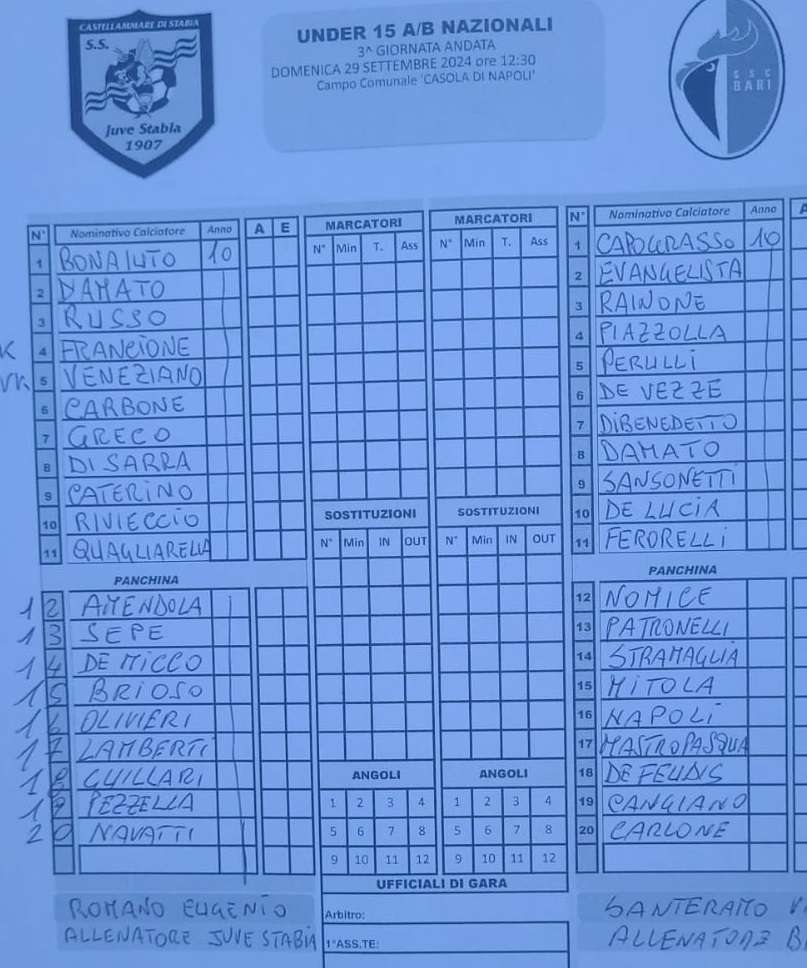 CASTELLAMMARE DI STABIA
S.S.
Juve Stabia
1907
UNDER 15 A/B NAZIONALI
3^ GIORNATA ANDATA
DOMENICA 29 SETTEMBRE 2024 ore 12:30
Campo Comunale 'CASOLA DI NAPOLI'
SSC
BARI
N° Nominativo Calciatore Anno A E
1 BONAIUTO 10
2 DAMATO
3 RUSSO
K 4 FRANCIONE
VK 5 VENEZIANO
6 CARBONE
7 GRECO
8 DI SARRA
9 CATERINO
10 RIVIECCIO
11 QUAGLIARELLA
PANCHINA
12 AMENDOLA
13 SEPE
14 DE MICCO
15 BRIOSO
16 OLIVIERI
17 LAMBERTI
18 GUILLARI
19 PEZZELLA
20 NAVATTI
ROMANO EUGENIO
ALLENATORE JUVE STABIA
MARCATORI
N° Min T. Ass
SOSTITUZIONI
N° Min IN OUT
ANGOLI
1 2 3 4
5 6 7 8
9 10 11 12
MARCATORI
N° Min T. Ass
SOSTITUZIONI
N° Min IN OUT
ANGOLI
1 2 3 4
5 6 7 8
9 10 11 12
UFFICIALI DI GARA
Arbitro:
1°ASS.TE:
N° Nominativo Calciatore Anno A
1 CAPOGRASSO 10
2 EVANGELISTA
3 RAINONE
4 PIAZZOLLA
5 PERULLI
6 DE VEZZE
7 DIBENEDETTO
8 DAMATO
9 SANSONETTI
10 DE LUCIA
11 FERORELLI
PANCHINA
12 NOMICE
13 PATRONELLI
14 STRAMAGLIA
15 MITOLA
16 NAPOLI
17 MASTROPASQUA
18 DE FEUDIS
19 CANGIANO
20 CARLONE
SANTERAMO
ALLENATORE